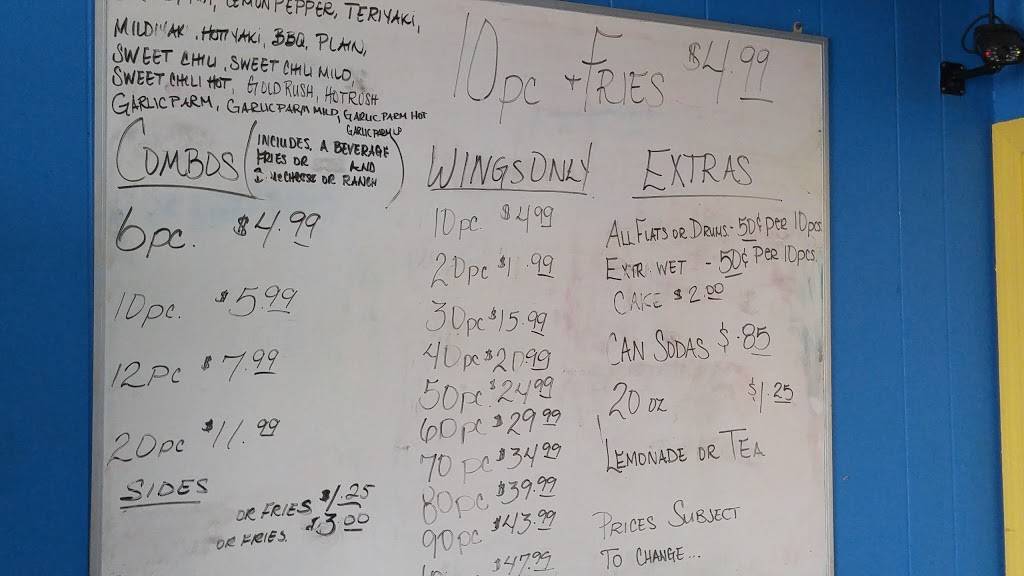 LEMON PEPPER, TERIYAKI,
MILDIYAKI, HOTIYAKI, BBQ, PLAIN,
SWEET CHILI, SWEET CHILI MILD,
SWEET CHILI HOT, GOLD RUSH, HOTRUSH
GARLIC PARM, GARLIC PARM MILD, GARLIC PARM HOT
GARLIC PARM LP
10pc + FRIES $4.99
COMBOS (INCLUDES A BEVERAGE
FRIES OR AND
CHEESE OR RANCH)
6pc. $4.99
10pc. $5.99
12pc $7.99
20pc $11.99
SIDES
OR FRIES $1.25
OR FRIES $3.00
WINGS ONLY
10pc. $4.99
20pc .99
30pc $15.99
40pc $20.99
50pc. $24.99
60pc $29.99
70pc $34.99
80pc $39.99
90pc $43.99
$47.99
EXTRAS
ALL FLATS OR DRUMS - 50¢ PER 10pcs.
EXTR WET - 50¢ PER 10pcs.
CAKE $2.00
CAN SODAS $.85
20 oz $1.25
LEMONADE OR TEA
PRICES SUBJECT
TO CHANGE...